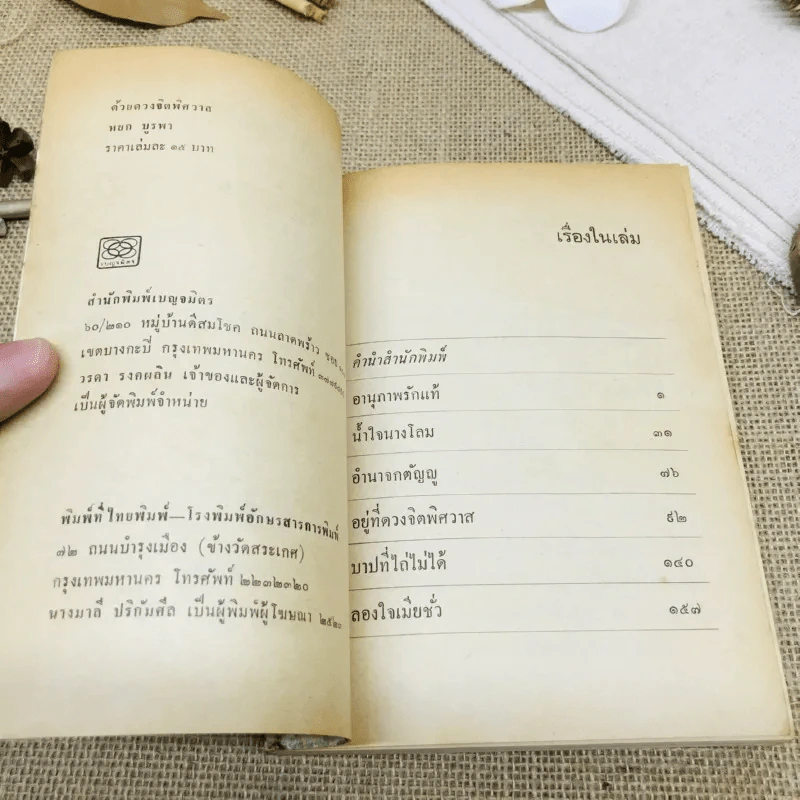 ด้วยดวงจิตพิศวาส
หยก บูรพา
ราคาเล่มละ ๑๕ บาท
เบญจมิตร
สำนักพิมพ์เบญจมิตร
๖๐/๒๑๐ หมู่บ้านดีสมโชค ถนนลาดพร้าว ซอย
เขตบางกะปิ กรุงเทพมหานคร โทรศัพท์
วรดา รงคผลิน เจ้าของและผู้จัดการ
เป็นผู้จัดพิมพ์จำหน่าย
พิมพ์ที่ไทยพิมพ์—โรงพิมพ์อักษรสารการพิมพ์
๗๒ ถนนบำรุงเมือง (ข้างวัดสระเกศ)
กรุงเทพมหานคร โทรศัพท์ ๒๒๓๒๓๒๐
นางมาลี ปริกัมศีล เป็นผู้พิมพ์ผู้โฆษณา
เรื่องในเล่ม
คำนำสำนักพิมพ์
อานุภาพรักแท้ ๑
น้ำใจนางโลม ๓๑
อำนาจกตัญญู ๗๖
อยู่ที่ดวงจิตพิศวาส ๙๒
บาปที่ไถ่ไม่ได้ ๑๔๐
ลองใจเมียชั่ว ๑๕๗